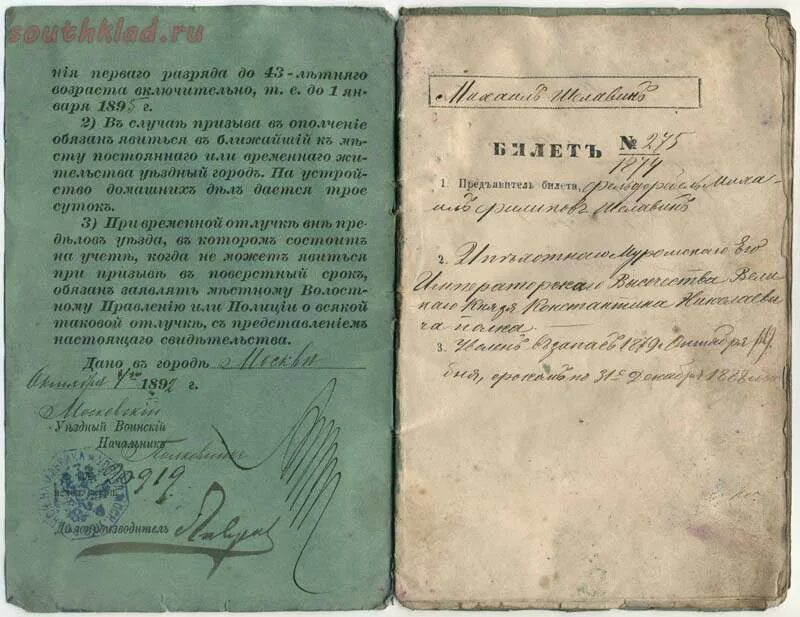 southklad.ru
нія перваго разряда до 43-лѣтняго
возраста включительно, т. е. до 1 ян-
варя 1895 г.
2) Въ случаѣ призыва въ ополченіе
обязанъ явиться въ ближайшій къ мѣ-
сту постояннаго или временнаго жи-
тельства уѣздный городъ. На устрой-
ство домашнихъ дѣлъ дается трое
сутокъ.
3) При временной отлучкѣ внѣ пре-
дѣловъ уѣзда, въ которомъ состоитъ
на учетѣ, когда не можетъ явиться
при призывѣ въ поверстный срокъ,
обязанъ заявлять мѣстному Волост-
ному Правленію или Полиціи о всякой
таковой отлучкѣ, съ представленіемъ
настоящаго свидѣтельства.
Дано въ городѣ Москвѣ
Октября 1892 г.
Московскій
Уѣздный Воинскій
Начальникъ
Полковникъ
Дѣлопроизводитель
Михаилъ Шелавинъ
БИЛЕТЪ № 275
1874
1. Предъявитель билета, фельдфебель Миха-
илъ Филиповъ Шелавинъ
2. Пѣхотнаго Муромскаго Его
Императорскаго Высочества Вели-
каго Князя Константина Николаеви-
ча полка
3. Уволенъ въ запасъ 1879 Октября
дня, срокомъ по 31е Декабря 1888